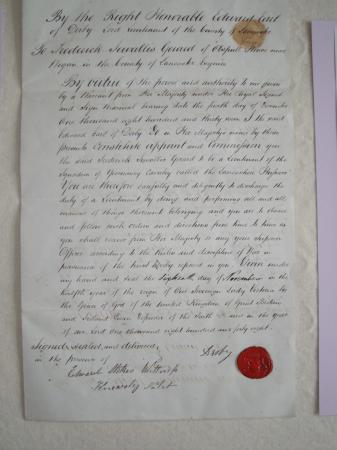 By the Right Honorable Edward Earl
of Derby Lord Lieutenant of the County of Lancaster
To Frederick Gerard of Aspull House near
Wigan in the County of Lancaster Esquire
By virtue of the power and authority to me given
by a Warrant from Her Majesty under Her Royal Signet
and Sign Manual bearing date the tenth day of
One thousand eight hundred and thirty seven I the said
Edward Earl of Derby Do in Her Majesty's name by these
presents Constitute appoint and Commission you
the said Frederick Gerard to be a Lieutenant of the
Squadron of Yeomanry Cavalry called the Lancashire Hussars
You are therefore carefully and diligently to discharge the
duty of a Lieutenant by doing and performing all and all
manner of things thereunto belonging and you are to observe
and follow such orders and directions from time to time as
you shall receive from Her Majesty or any your superior
Officer according to the Rules and discipline of War in
pursuance of the trust hereby reposed in you Given under
my hand and seal the day of November in the
twelfth year of the reign of Our Sovereign Lady Victoria by
the Grace of God of the United Kingdom of Great Britain
and Ireland Queen Defender of the Faith and in the year
of our Lord One thousand eight hundred and forty eight.
Signed sealed and delivered
in the presence of
Derby
Edward